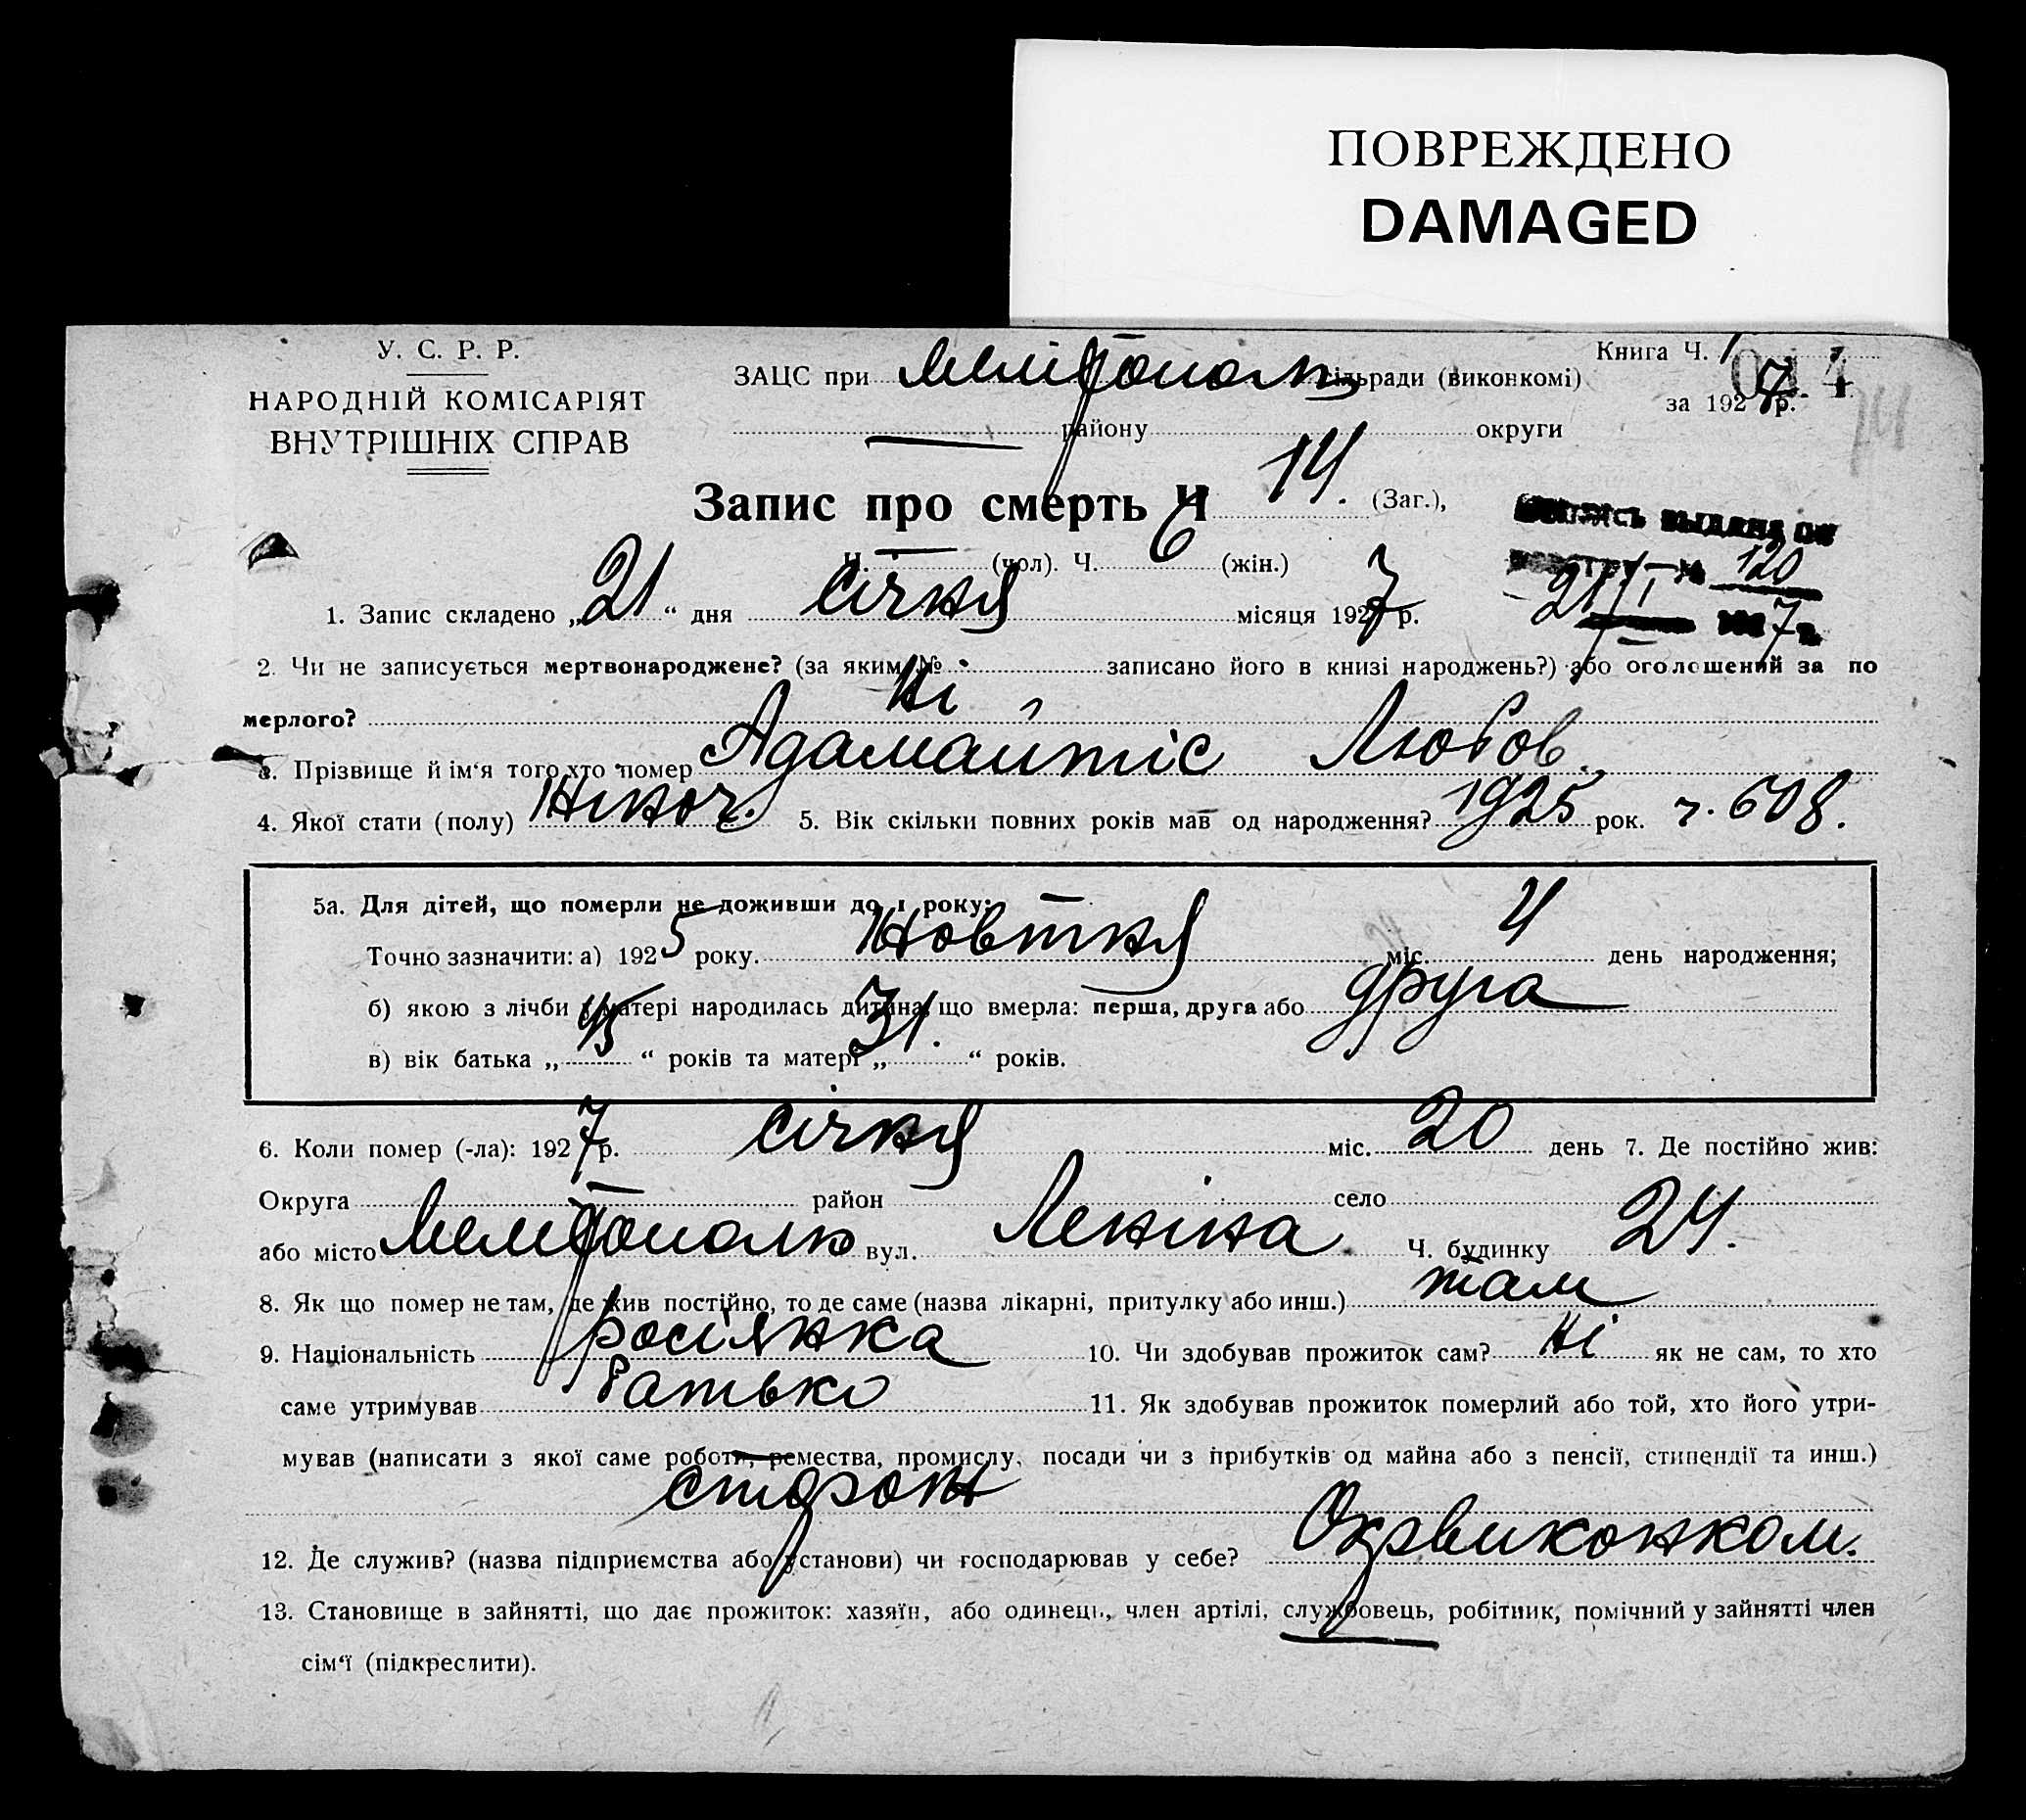 ПОВРЕЖДЕНО
DAMAGED
У. С. Р. Р.
НАРОДНІЙ КОМІСАРІЯТ
ВНУТРІШНІХ СПРАВ
ЗАЦС при Мелітополь сільради (виконкомі)
району округи
Книга Ч. 1
за 1927 р.
Запис про смерть Ч 14. (Заг.),
Ч. — (чол). Ч. 6 (жін.)
выдана
120
21/I 7
1. Запис складено „21“ дня січня місяця 1927 р.
2. Чи не записується мертвонароджене? (за яким № записано його в книзі народжень?) або оголошений за по
мерлого? Ні
3. Прізвище й ім‘я того хто помер Адамайтіс Любов.
4. Якої стати (полу) Жіноч. 5. Вік скільки повних років мав од народження? 1925 рок. ч. 608.
5а. Для дітей, що померли не доживши до 1 року:
Точно зазначити: а) 1925 року. Жовтня міс. 4 день народження;
б) якою з лічби у матері народилась дитина, що вмерла: перша, друга або друга
в) вік батька „45“ років та матері „31.“ років.
6. Коли помер (-ла): 1927 р. січня міс. 20 день 7. Де постійно жив:
Округа район село
або місто Мелітополь вул. Леніна Ч. будинку 24.
8. Як що помер не там, де жив постійно, то де саме (назва лікарні, притулку або инш.) там
9. Національність росіянка 10. Чи здобував прожиток сам? ні як не сам, то хто
саме утримував батько 11. Як здобував прожиток померлий або той, хто його утри-
мував (написати з якої саме роботи, ремества, промислу, посади чи з прибутків од майна або з пенсії, стипендії та инш.)
сторож
12. Де служив? (назва підприємства або установи) чи господарював у себе? Окрвиконком.
13. Становище в зайнятті, що дає прожиток: хазяїн, або одинець, член артілі, службовець, робітник, помічний у зайнятті член
сім‘ї (підкреслити).